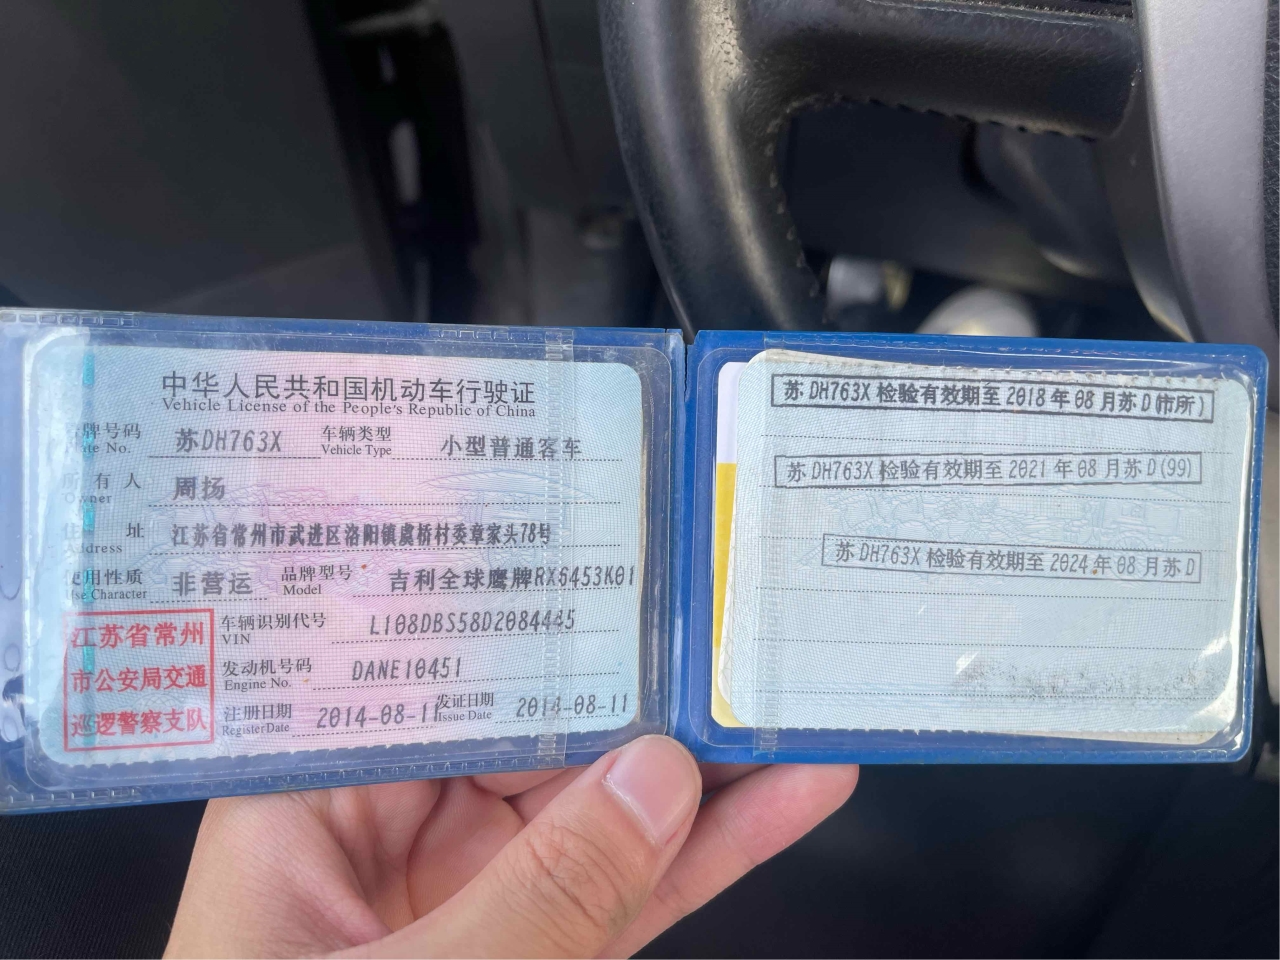 中华人民共和国机动车行驶证
Vehicle License of the People's Republic of China
号牌号码 苏DH763X 车辆类型 小型普通客车
Plate No. Vehicle Type
所有人 周扬
Owner
住址 江苏省常州市武进区洛阳镇虞桥村委章家头78号
Address
使用性质 非营运 品牌型号 吉利全球鹰牌RX6453K01
Use Character Model
江苏省常州
市公安局交通
巡逻警察支队
车辆识别代号 L108DBS58D2084445
VIN
发动机号码 DANE10451
Engine No.
注册日期 2014-08-11 发证日期 2014-08-11
Register Date Issue Date
苏DH763X检验有效期至2018年08月苏D(市所)
苏DH763X检验有效期至2021年08月苏D(99)
苏DH763X检验有效期至2024年08月苏D